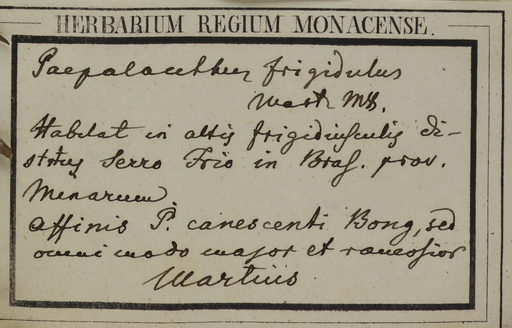 HERBARIUM REGIUM MONACENSE.
Paepalanthus frigidulus
Mart. MS.
Habitat in altis frigidiusculis di-
strictus Serro Frio in Bras. prov.
Minarum.
affinis P. canescenti Bong, sed
omni modo major et ramosior
Martius